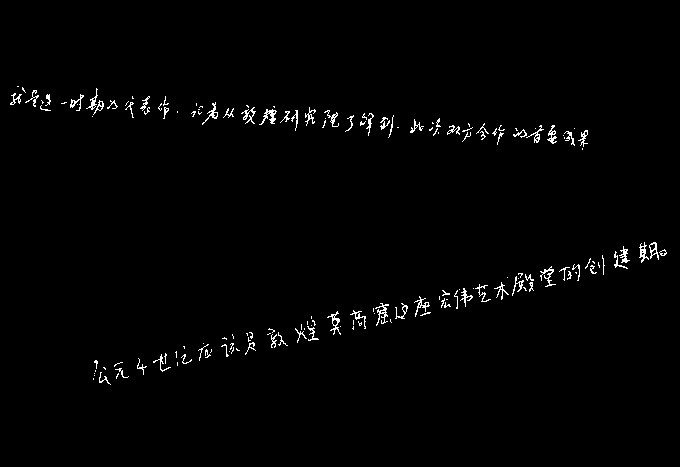 就是这一时期的代表作.记者从敦煌研究院了解到.此次双方合作的首要成果
公元4世纪应该是敦煌莫高窟这座宏伟艺术殿堂的创建期。